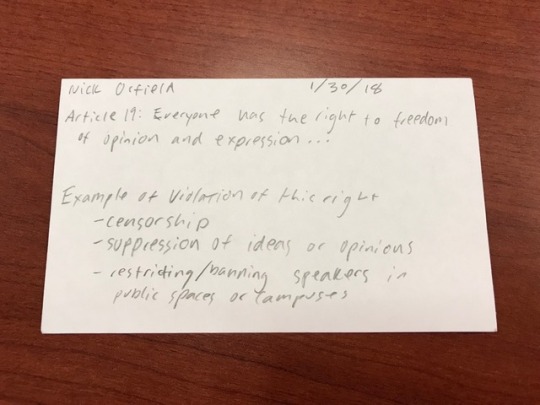 Nick Orfield 1/30/18
Article 19: Everyone has the right to freedom
of opinion and expression...
Example of Violation of this right
-censorship
-suppression of ideas or opinions
-restricting/banning speakers in
public spaces or campuses